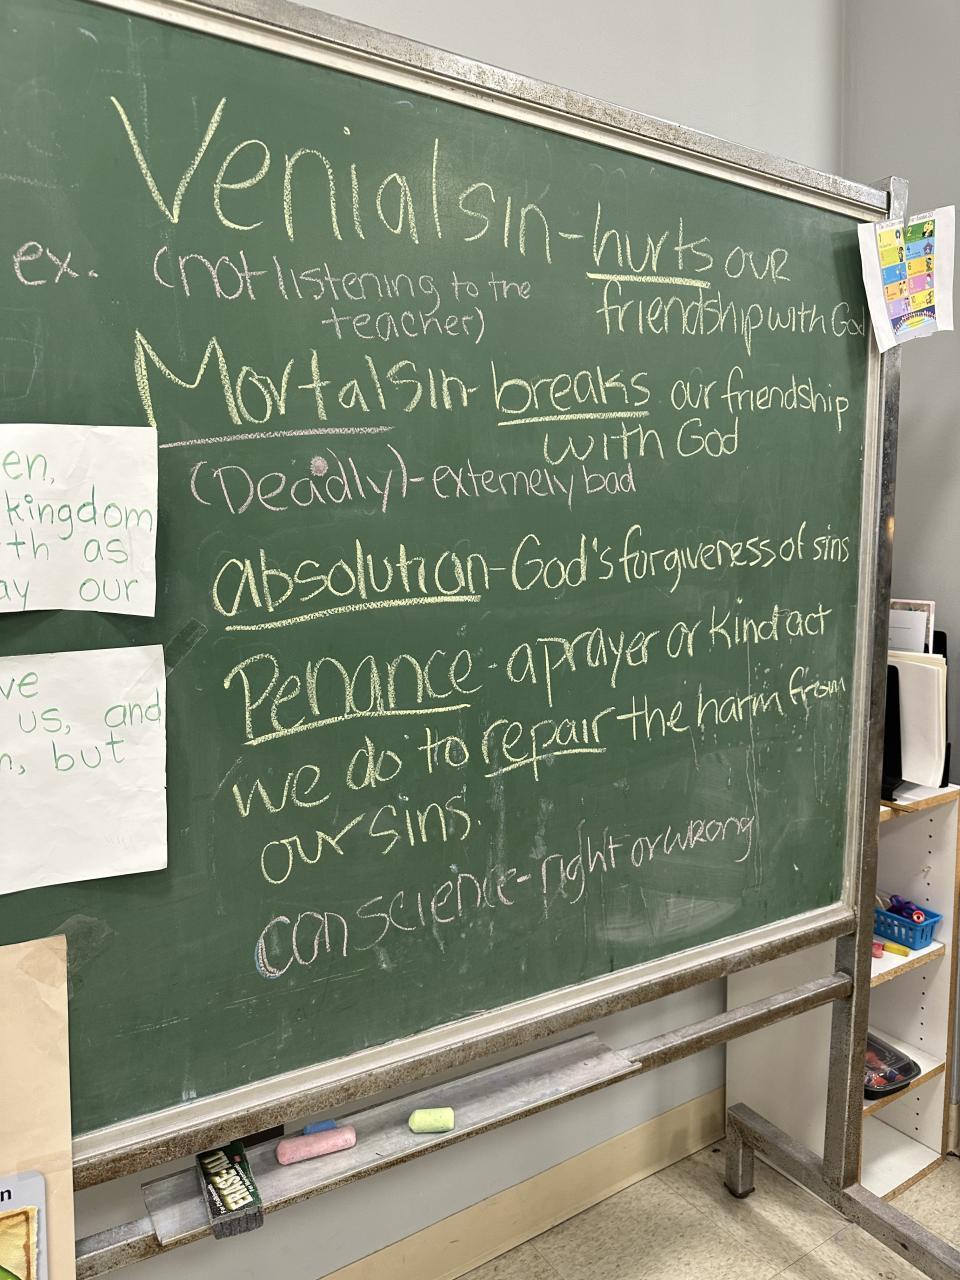 Venial sin - hurts our
friendship with God
ex. (not listening to the
teacher)
Mortal sin - breaks our friendship
with God
(Deadly) - extemely bad
absolution - God's forgiveness of sins
Penance - a prayer or kind act
we do to repair the harm from
our sins.
conscience - right or wrong
en,
kingdom
th as
ay our
ve
us, and
n, but
ERASE
n